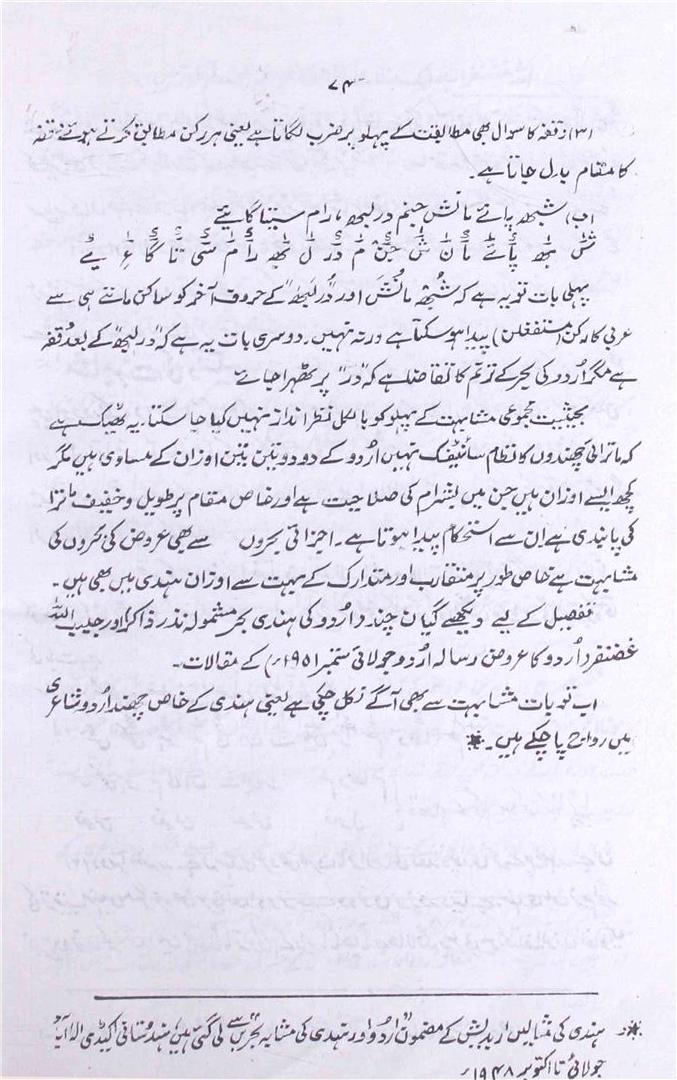 ۷۴
(۳) وقفہ کا سوال بھی مطابقت کے پہلو پر ضرب لگاتا ہے یعنی ہر رکن مطابق کرتے ہوئے وقفہ
کا مقام بدل جاتا ہے۔
(ب) شبھ پائے مانش جنم درلبھ، رام سیتا گایئے
پہلی بات تو یہ ہے کہ شُبھ مانُشَ اور "دُرلبھَ" کے حروف آخر کو ساکن مانتے ہی سے
عربی کا رکن (مستفعلن) پیدا ہو سکتا ہے ورنہ نہیں۔ دوسری بات یہ ہے کہ "درلبھ" کے بعد وقفہ
ہے مگر اردو کی بحر کے ترنم کا تقاضا ہے کہ "در" پر ٹھہرا جائے
بحیثیت مجموعی مشابہت کے پہلو کو بالکل نظر انداز نہیں کیا جا سکتا۔ یہ ٹھیک ہے
کہ ماترائی چھندوں کا نظام سائنٹیفک نہیں اردو کے دو دو تین تین اوزان کے مساوی ہیں مگر
کچھ ایسے اوزان ہیں جن میں بشرام کی صلاحیت ہے اور خاص مقام پر طویل و خفیف ماترا
کی پابندی ہے ان سے استحکام پیدا ہوتا ہے۔ اجزائی بحروں سے بھی عروض کی بحروں کی
مشابہت ہے خاص طور پر متقارب اور متدارک کے بہت سے اوزان ہندی میں بھی ہیں۔
تفصیل کے لیے دیکھئے گیان چند (اردو کی ہندی بحر مشمولہ نذر ذاکر) اور حبیب اللہ
غضنفر (اردو کا عروض رسالہ اردو جولائی ستمبر ۱۹۵۱ء) کے مقالات۔
اب تو بات مشابہت سے بھی آگے نکل چکی ہے یعنی ہندی کے خاص چھند اردو شاعری
میں رواج پا چکے ہیں۔*
* ہندی کی مثالیں کے مضمون "اردو اور ہندی کی مشابہ بحریں" سے لی گئی ہیں، ہندوستانی اکیڈمی الہ آباد
جولائی تا اکتوبر ۱۹۴۸ء